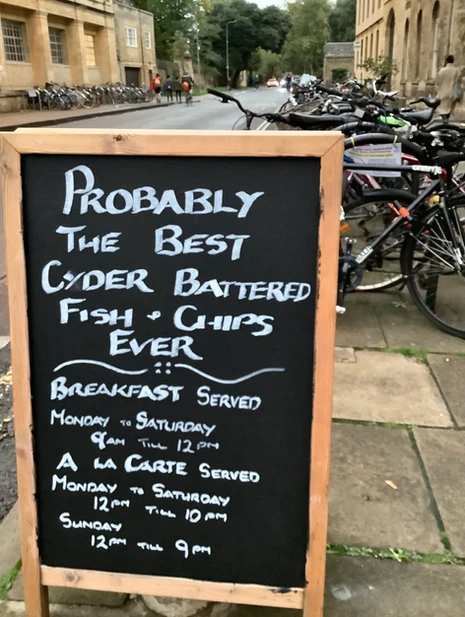 PROBABLY
THE BEST
CYDER BATTERED
FISH + CHIPS
EVER
BREAKFAST SERVED
MONDAY TO SATURDAY
9AM TILL 12PM
A LA CARTE SERVED
MONDAY TO SATURDAY
12PM TILL 10PM
SUNDAY
12PM TILL 9PM